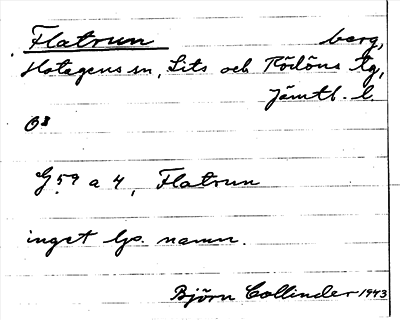 Flatrun berg,
Hotagens sn, Lits och Rödöns tg,
Jämtl. l.
O8
G 59 a 4, Flatrun
inget lps. namn.
Björn Collinder 1943